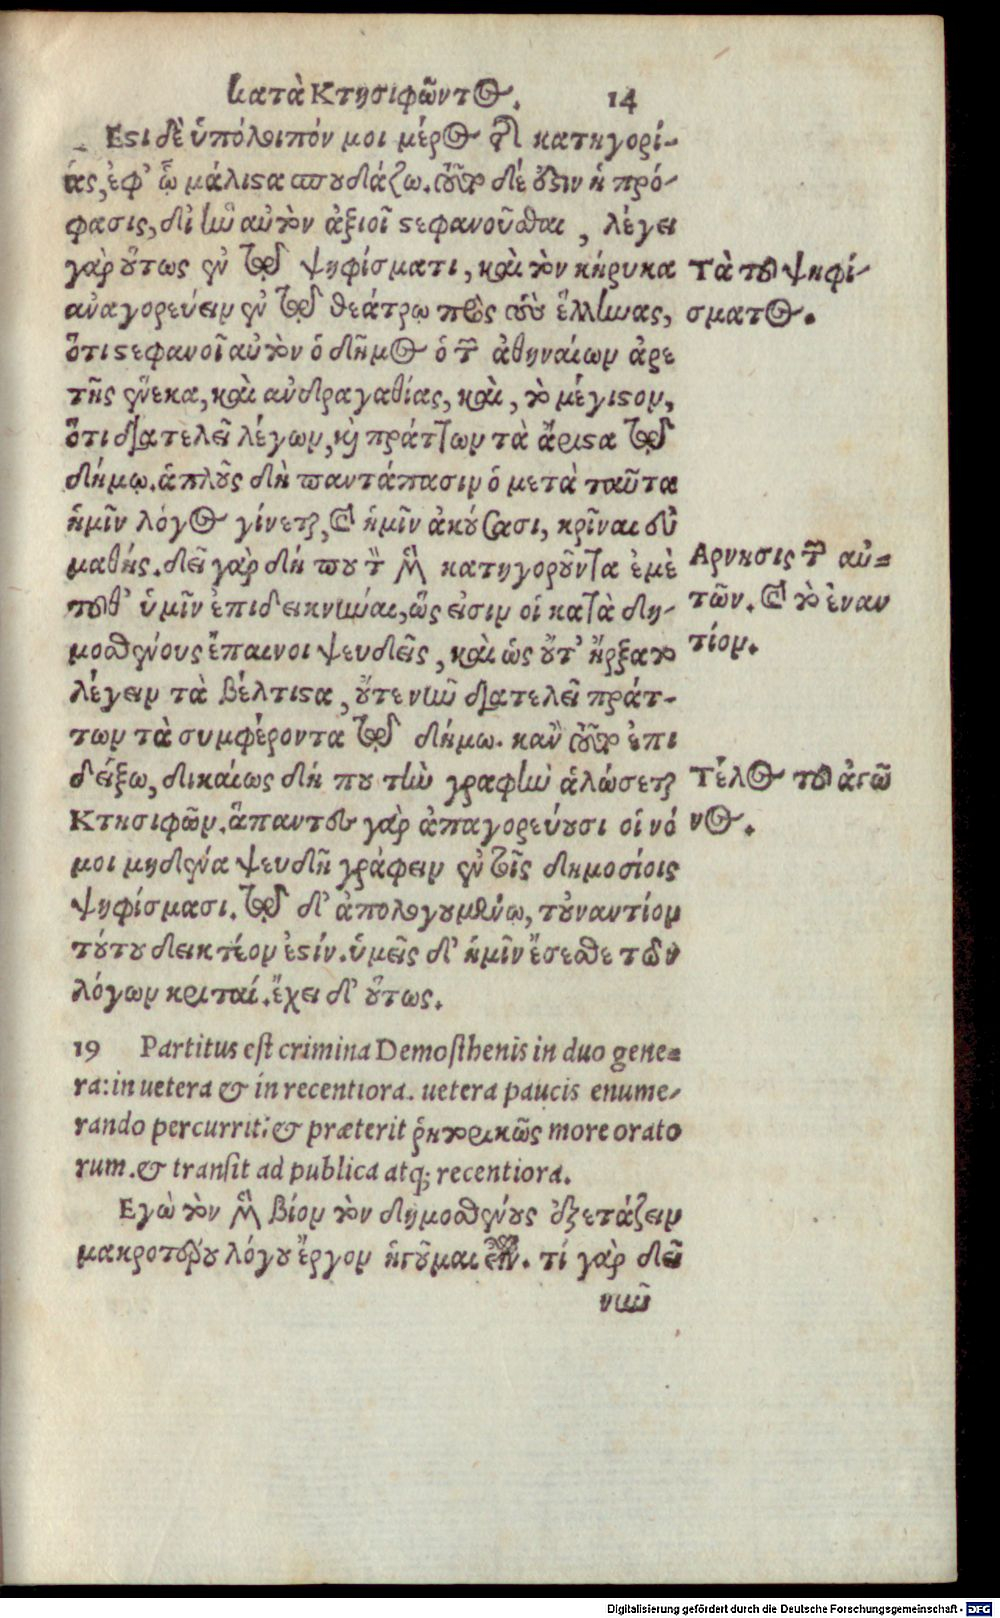 κατὰ Κτησιφῶντος. 14
Εστι δὲ ὑπόλοιπόν μοι μέρος τῆς κατηγορί-
ας, ἐφ' ᾧ μάλιστα σπουδάζω. τοῦτο δέ ὅστιν ἡ πρό-
φασις, δι' ἣν αὐτὸν ἀξιοῖ στεφανοῦσθαι, λέγει
γὰρ οὕτως ἐν τῷ ψηφίσματι, καὶ τὸν κήρυκα
ἀναγορεύειν ἐν τῷ θεάτρῳ πρὸς τοὺς ἕλληνας,
ὅτι στεφανοῖ αὐτὸν ὁ δῆμος ὁ τῶν ἀθηναίων ἀρε
τῆς ἕνεκα, καὶ ἀνδραγαθίας, καὶ, τὸ μέγιστον,
ὅτι διατελεῖ λέγων, καὶ πράττων τὰ ἄριστα τῷ
δήμῳ. ἁπλοῦς δὴ παντάπασιν ὁ μετὰ ταῦτα
ἡμῖν λόγος γίνεται, καὶ ἡμῖν ἀκούσασι, κρῖναι εὐ
μαθής. δεῖ γὰρ δή που τὸν μὲν κατηγοροῦντα ἐμὲ
τοῦθ' ὑμῖν ἐπιδεικνύναι, ὥς εἰσιν οἱ κατὰ δη-
μοσθένους ἔπαινοι ψευδεῖς, καὶ ὡς οὔτ' ἤρξατο
λέγειν τὰ βέλτιστα, οὔτε νῦν διατελεῖ πράτ-
των τὰ συμφέροντα τῷ δήμω. κἂν τοῦτο ἐπι
δείξω, δικαίως δή που τὴν γραφὴν ἁλώσεται
Κτησιφῶν. ἅπαντες γὰρ ἀπαγορεύουσι οἱ νό
μοι μηδένα ψευδῆ γράφειν ἐν τοῖς δημοσίοις
ψηφίσμασι. τῷ δ' ἀπολογουμένῳ, τοὐναντίον
τούτου δεικτέον ἐστίν. ὑμεῖς δ' ἡμῖν ἔσεσθε τῶν
λόγων κριταί. ἔχει δ' οὕτως.
Τὰ τοῦ ψηφί-
σματος.
Αρνησις τῶν αὐ-
τῶν. καὶ τὸ ἐναν
τίον.
Τέλος τοῦ ἀγῶ
νος.
19 Partitus est crimina Demosthenis in duo gene-
ra: in uetera & in recentiora. uetera paucis enume-
rando percurrit: & præterit ῥητορικῶς more orato
rum. & transit ad publica atq; recentiora.
Εγὼ τὸν μὲν βίον τὸν δημοσθένους ἐξετάζειν
μακροτέρου λόγου ἔργον ἡγοῦμαι εἶναι. τί γὰρ δεῖ
νῦν
Digitalisierung gefördert durch die Deutsche Forschungsgemeinschaft - DFG